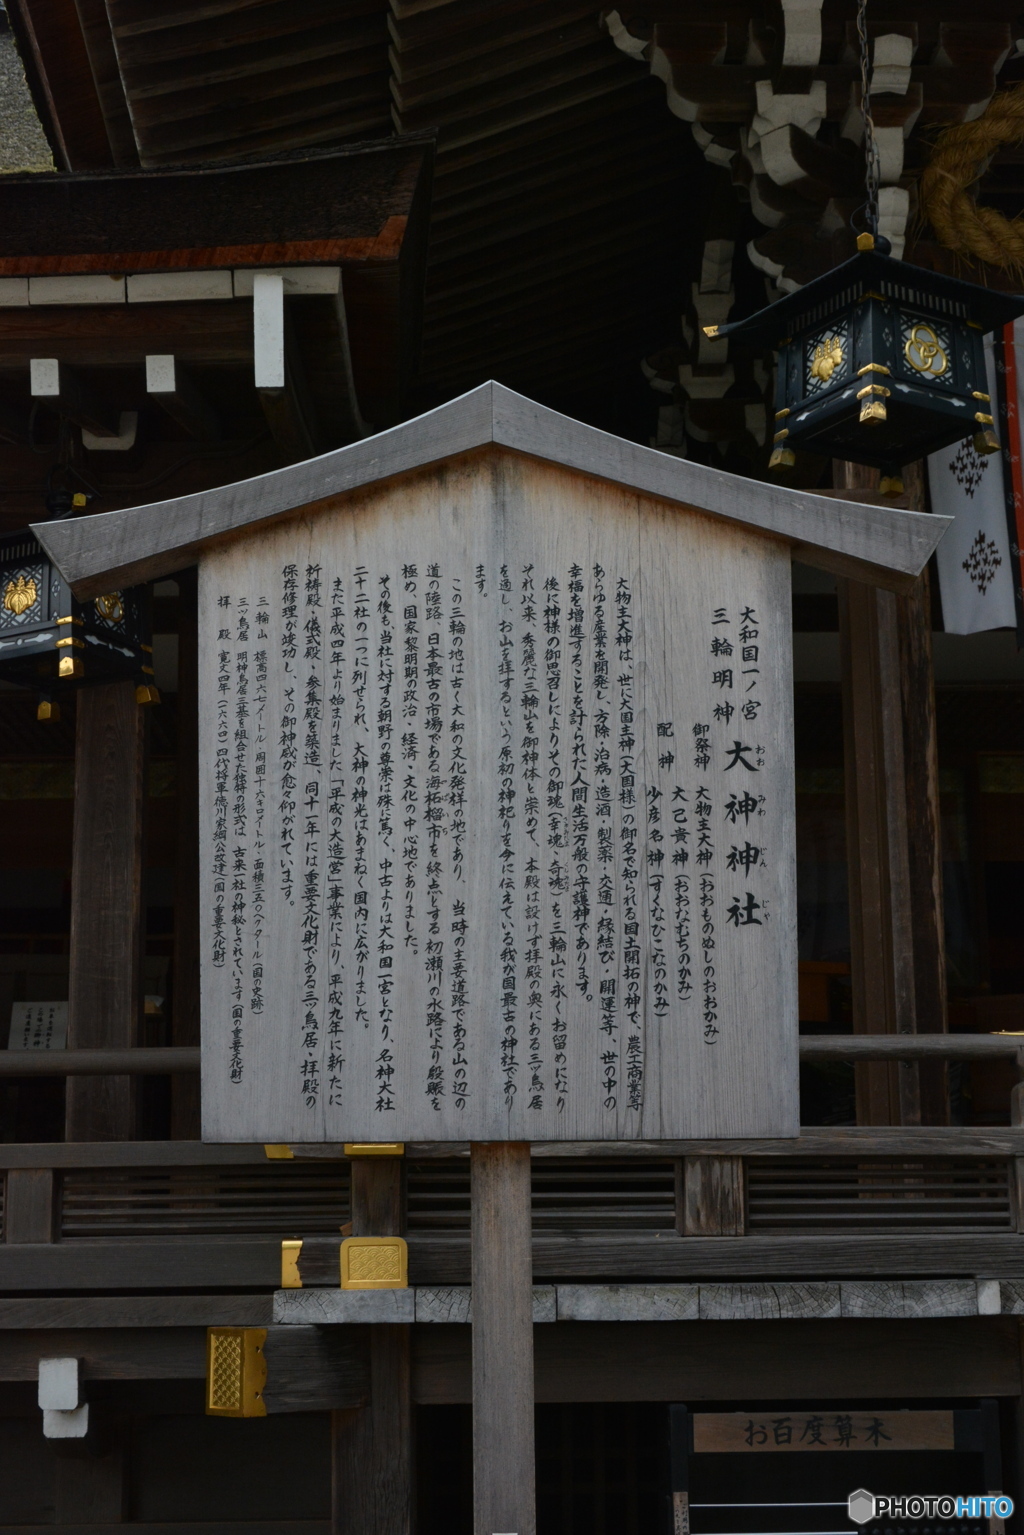 大和国一ノ宮
三輪明神
大神神社
おお みわ じん じや
御祭神 大物主大神(おおものぬしのおおかみ)
配神 大己貴神(おおなむちのかみ)
少彦名神(すくなひこなのかみ)
大物主大神は、世に大国主神(大国様)の御名で知られる国土開拓の神で、農工商業等
あらゆる産業を開発し、方除・治病・造酒・製薬・交通・縁結び・開運等、世の中の
幸福を増進することを計られた人間生活万般の守護神であります。
後に神様の御思召しによりその御魂(幸魂・奇魂)を三輪山に永くお留めになり
それ以来、秀麗な三輪山を御神体と崇めて、本殿は設けず拝殿の奥にある三ッ鳥居
を通し、お山を拝するという原初の神祀りを今に伝えている我が国最古の神社であり
ます。
この三輪の地は古く大和の文化発祥の地であり、当時の主要道路である山の辺の
道の陸路、日本最古の市場である海柘榴市を終点とする初瀬川の水路により殷賑を
極め、国家黎明期の政治・経済・文化の中心地でありました。
その後も、当社に対する朝野の尊崇は殊に篤く、中古よりは大和国一宮となり、名神大社
二十二社の一つに列せられ、大神の神光はあまねく国内に広がりました。
また平成四年より始まりました「平成の大造営」事業により、平成九年に新たに
祈祷殿・儀式殿・参集殿を築造、同十一年には重要文化財である三ッ鳥居・拝殿の
保存修理が竣功し、その御神威が愈々仰がれています。
三輪山 標高四六七メートル・周囲十六キロメートル・面積三五〇ヘクタール(国の史跡)
三ッ鳥居 明神鳥居三基を組合せた独特の形式は、古来一社の神秘とされています(国の重要文化財)
拝殿 寛文四年(一六六四)四代将軍徳川家綱公改達(国の重要文化財)
お百度算木
PHOTOHITO